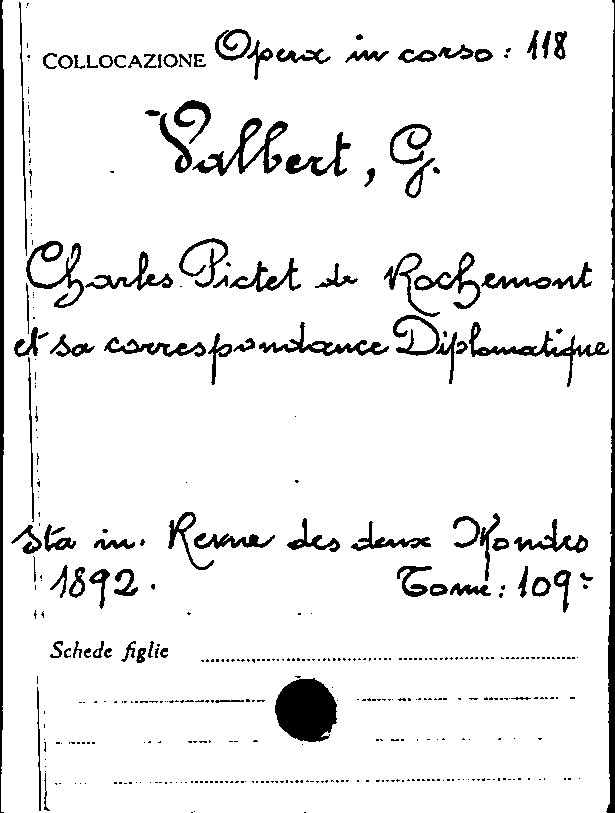 COLLOCAZIONE Opera in corso: 118
Valbert, G.
Charles Pictet de Rochemont
et sa correspondance Diplomatique
sta in. Revue des deux Mondes
1892. Tome: 109-
Schede figlie